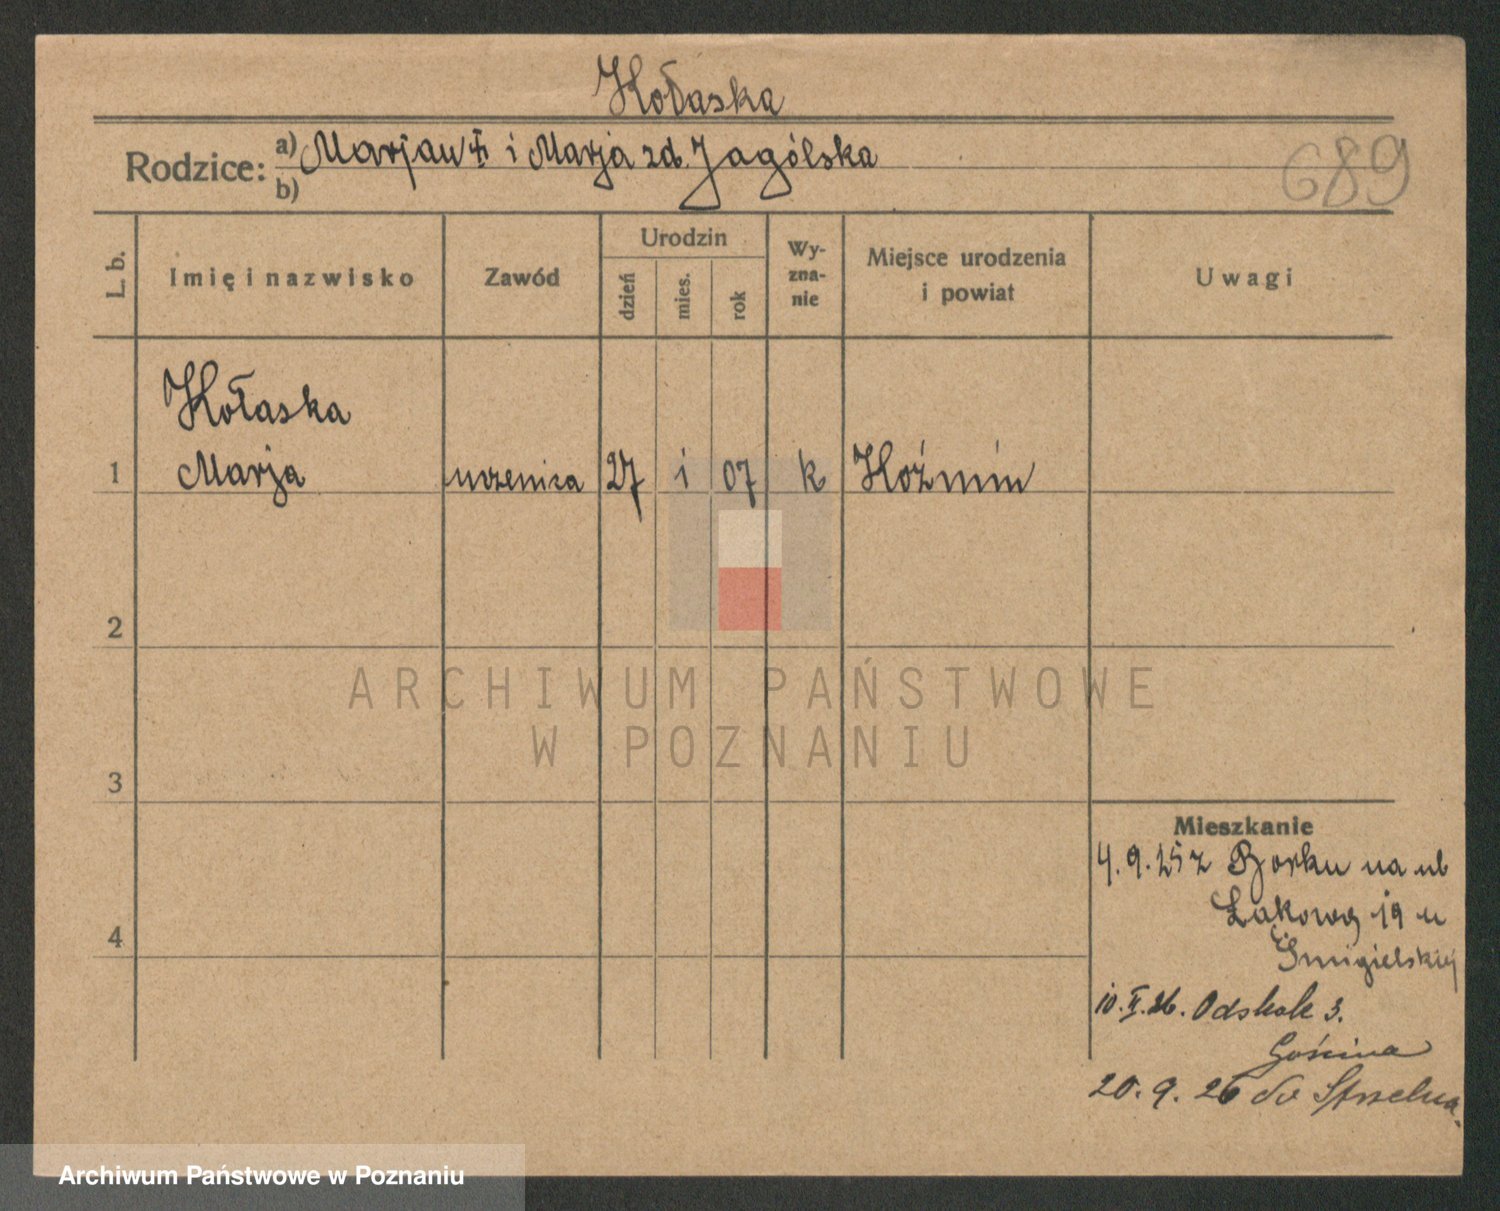 Kołaska
Rodzice: a) Marjan i Marja zd. Jagólska
b)
689
L. b.
Imię i nazwisko
Zawód
Urodzin
dzień
mies.
rok
Wy-
zna-
nie
Miejsce urodzenia
i powiat
Uwagi
Kołaska
1 Marja uczenica 27 i 07 k Koźmin
2
3
4
Mieszkanie
4.9.25 z Borku na ul
Łąkową 19 u
Śmigielskiej
10. .26. Odskok 3.
Gościna
20.9.26 do Strzelna.
ARCHIWUM PAŃSTWOWE
W POZNANIU
Archiwum Państwowe w Poznaniu